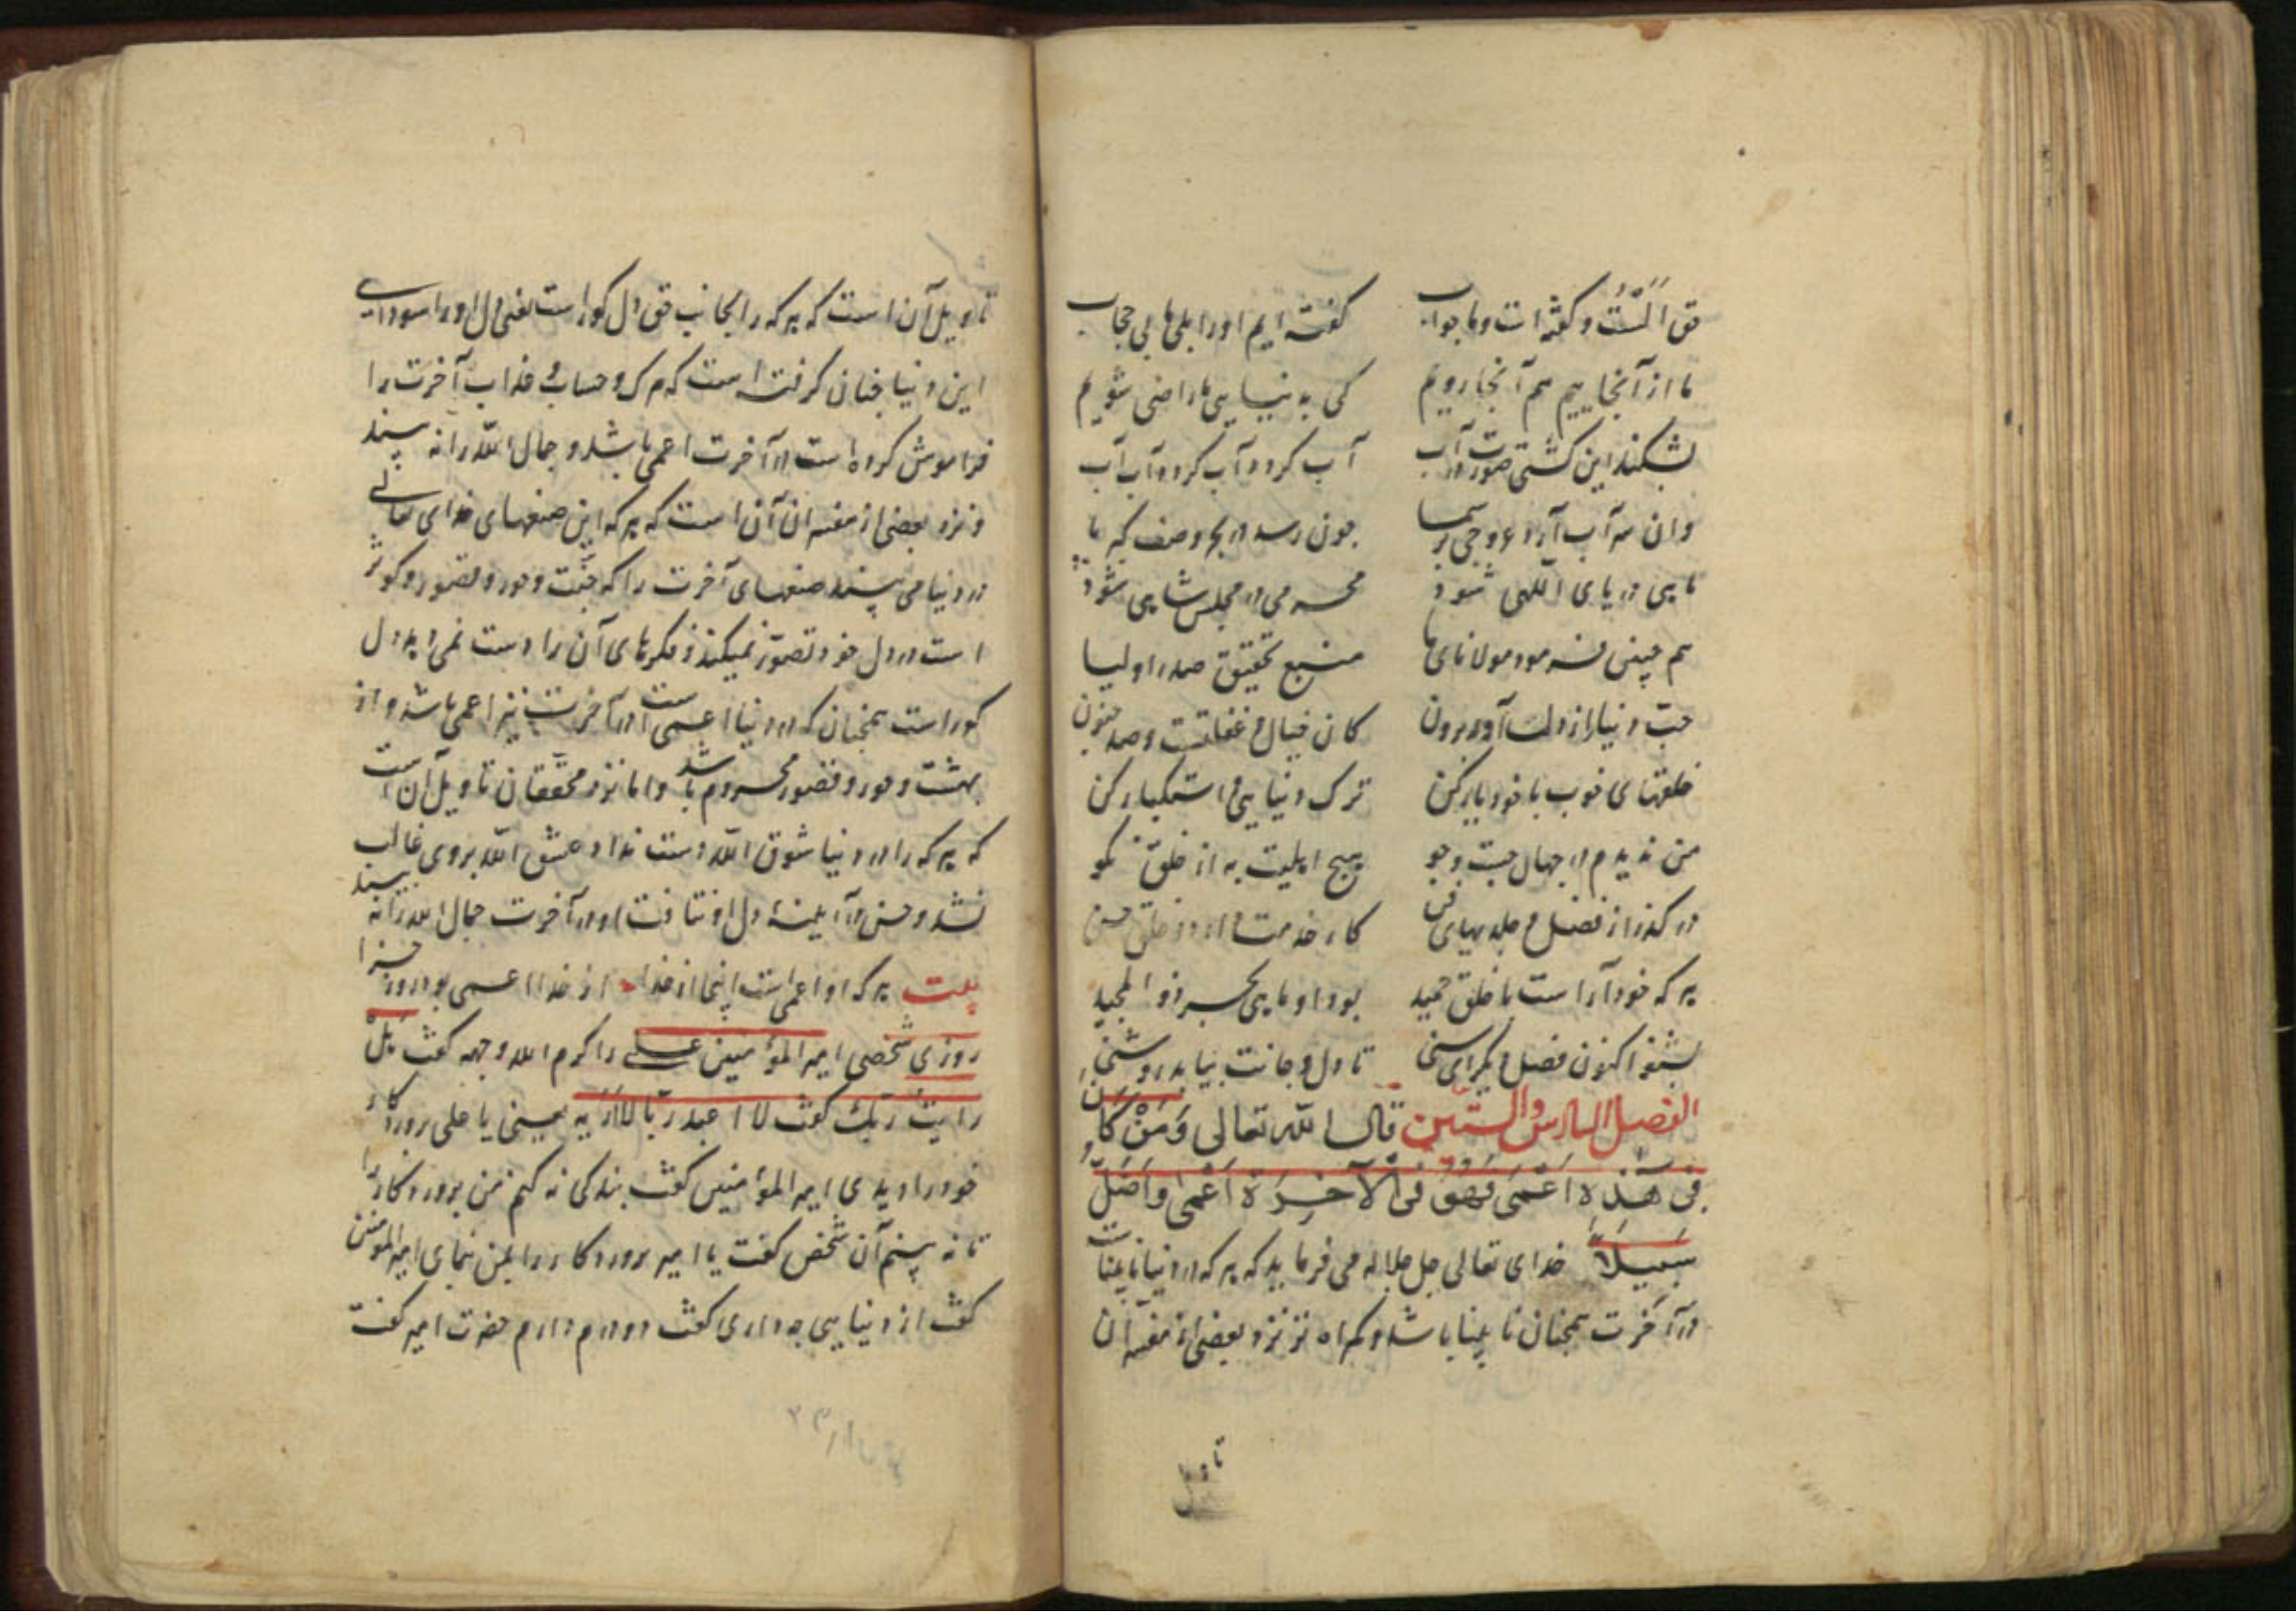 حق اَلَسْتُ و کفته است و ما جواب کفته ایم او را بلی ما بی حجاب
ما از آنجاییم هم آنجا رویم کی به دنیایی ما راضی شویم
بشکند این کشتی صورت در آب آب کردد آب کردد آب آب
وان سه آب آرد عروجی بر سما چون رسد در بحر وصف کبریا
ماهی دریای اللهی شود محرمی در مجلس شاهی شود
هم چنین فرمود مولانای ما منبع تحقیق صدر اولیا
حبّ دنیا را از دلت آور برون کان خیال و غفلتست و صد جنون
خلقتهای خوب با خود یار کن ترک دنیایی و استکبار کن
من ندیدم در جهان جست و جو هیچ اهلیت به از خلق نکو
در کذر از فضل و جلدیهای فن کار خدمت دارد و خلق حسن
هر که خود آراست با خلق حمید بود او ماهی بحر ذو المجید
بشنو اکنون فصل دیکر ای سنی تا دل و جانت بیابد روشنی
الفصل السادس والستین قال الله تعالی وَمَنْ کَانَ
فی هٰذه اَعْمَی فَهُوَ فی الْآخِرَةِ اَعْمٰی وَاَضَلُّ
سَبیلاً خدای تعالی جل جلاله می فرماید که هر که در دنیا نابیناست
در آخرت همچنان نابینا باشد و کمراه تر نزد بعضی از مفسران
تاویل
تاویل آن است که هر که را بجانب حق دل کور است یعنی دل او را سودای
این دنیا چنان کرفته است که مرک و حساب و عذاب آخرت را
فراموش کرده است در آخرت اعمی باشد و جمال الله را نه بیند
و نزد بعضی از مفسران آن است که هر که این صنعهای خدای تعالی
در دنیا می بیند صنعهای آخرت را که جنّت و حور و قصور و کوثر
است در دل خود تصوّر نمیکند و فکرهای آن را دست نمی دهد دل
کور است همچنان که در دنیا اعمی است در آخرت نیز اعمی باشد و از
بهشت و حور و قصور محروم باشد و اما نزد محقّقان تاویل آن است
که هر که را در دنیا شوق الله دست نداد و عشق الله بر وی غالب
نشد و حسن در آیینهٔ دل او نتافت او در آخرت جمال الله را نه بیند
بیت هر که او اعمی است اینجا از خدا از خدا اعمی بود روز جزا
روزی شخصی امیر المؤمنین علی را کرم الله وجهه کفت هَلْ
رایت ربّک کفت لا اعبد ربّا لا اَرَیه یعنی یا علی پروردکار
خود را دیدی امیر المؤمنین کفت بندکی نه کنم من پروردکار را
تا نه بینم آن شخص کفت یا امیر پروردکار را بمن نمای امیر المومنین
کفت از دنیایی چه داری کفت دو درم دارم حضرت امیر کفت